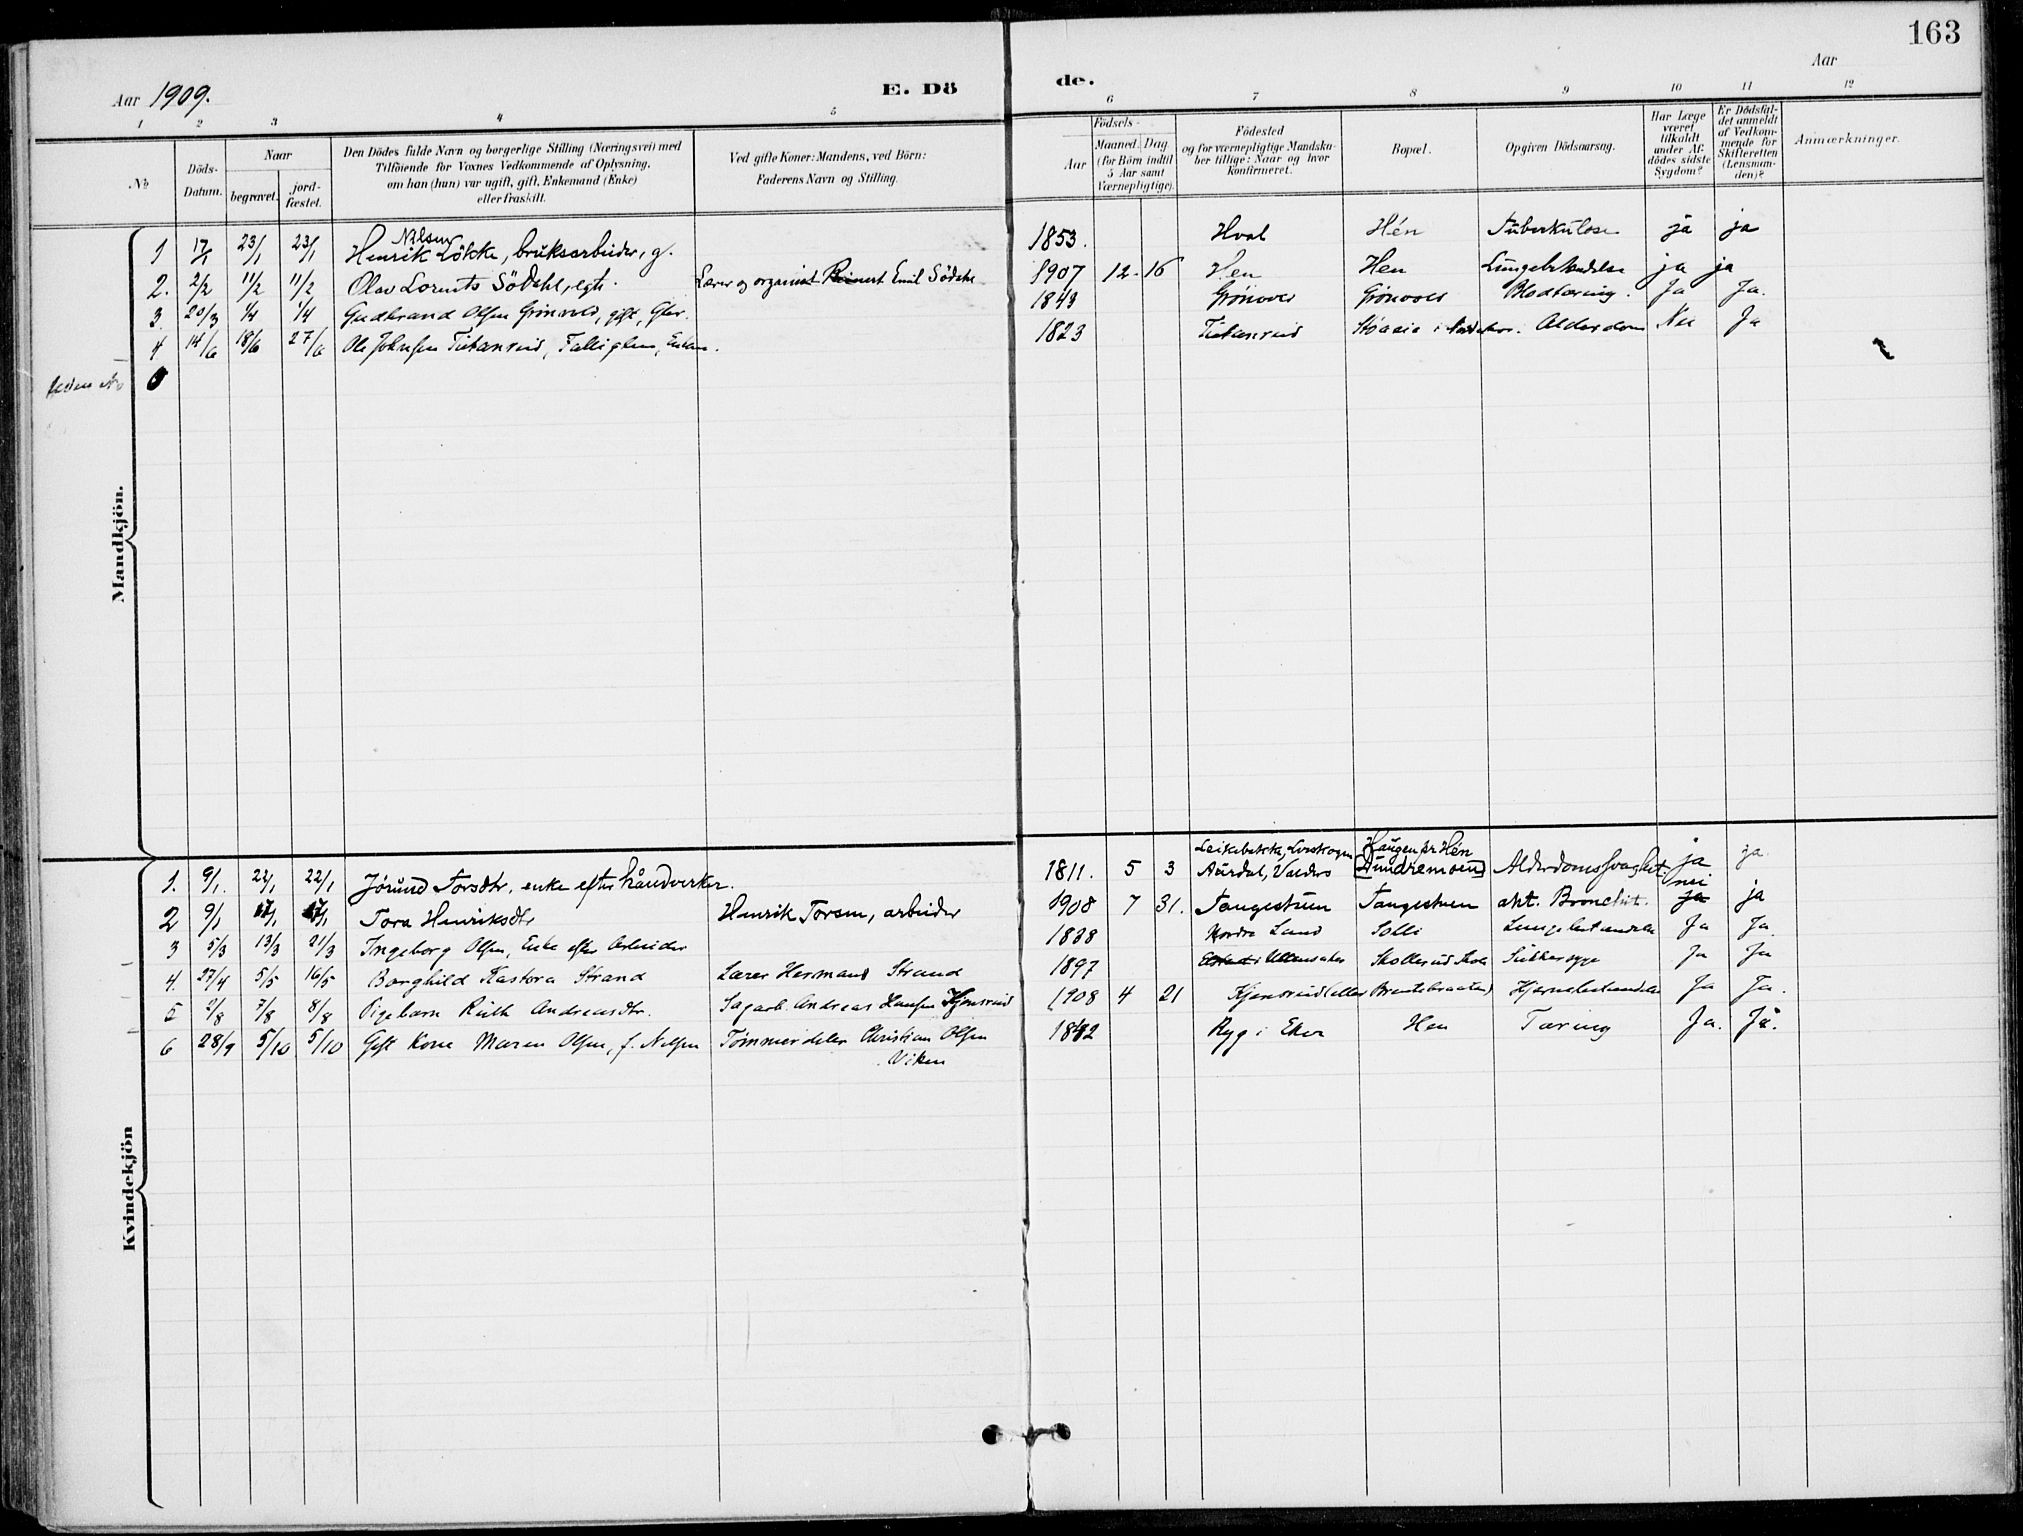 163
Aar 1909. E. Dö de. Aar
1 2 3 4 5 6 7 8 9 10 11 12
№ Döds-Datum. Naar begravet. jord-fæstet. Den Dödes fulde Navn og borgerlige Stilling (Næringsvei) med Tilföiende for Voxnes Vedkommende af Oplysning, om han (hun) var ugift, gift, Enkemand (Enke) eller fraskilt. Ved gifte Koner: Mandens, ved Börn: Faderens Navn og Stilling. Födsels- Aar Maaned. Dag (for Börn indtil 5 Aar samt Værnepligtige). Födested og for værnepligtige Mandskaber tillige: Naar og hvor Konfirmeret. Bopæl. Opgiven Dödsaarsag. Har Læge været tilkaldt under Afdödes sidste Sygdom? Er Dödsfaldet anmeldt af Vedkommende for Skifteretten (Lensmanden)? Anmærkninger.
Mandkjön.
1 17/1 23/1 23/1 Henrik Nilsen Løkke, bruksarbeider, g. 1853. Hval Hén Tuberkulose ja ja
2. 2/2 11/2 11/2 Olav Lorents Södahl, egte. Lærer og organist Reinert Emil Södahl 1907 12 16 Hen Hen Lungebetændelse ja ja
3. 20/3 1/4 1/4 Gudbrand Olsen Grönvold, gift, 1843 Grönvold Blodtæring. Ja Ja.
4 14/6 18/6 27/6 Ole Johnsen 1823 i Alderdom Nei Ja
Kvindekjön
1. 9/1. 22/1 22/1 Jörund Torsdtr, enke efter håndverker. 1811. 5 3 Aurdal, Valdres Haugen pr Hén Alderdomssvaghet. ja ja
2 9/1 17/1 17/1 Tora Henriksdtr Henrik Torsen, arbeider 1908 7 31. Tangestuen Tangestuen akt. Bronchit. nei ja ja
3 5/3 13/3 21/3 Ingeborg Olsen, Enke efter Arbeider 1838 Nordre Land Solli Lungebetændelse Ja Ja.
4. 27/4 5/5 16/5 Borghild Kastora Strand Lærer Herman Strand 1897 i Ullensaker Skollerud Skole Sukkersyge Ja Ja
5 2/8 7/8 8/8 Pigebarn Ruth Andreasdtr. Sagarb. Andreas Hansen Kjensrud 1908 4 21 Kjensrud (eller Brentebraaten) Hjernebetændelse Ja Ja.
6 28/9 5/10 5/10 Gift Kone Maren Olsen, f. Nilsen Tømmerdeler Christian Olsen Viken 1842 Ryg i Eker Hen Tæring Ja. Ja.